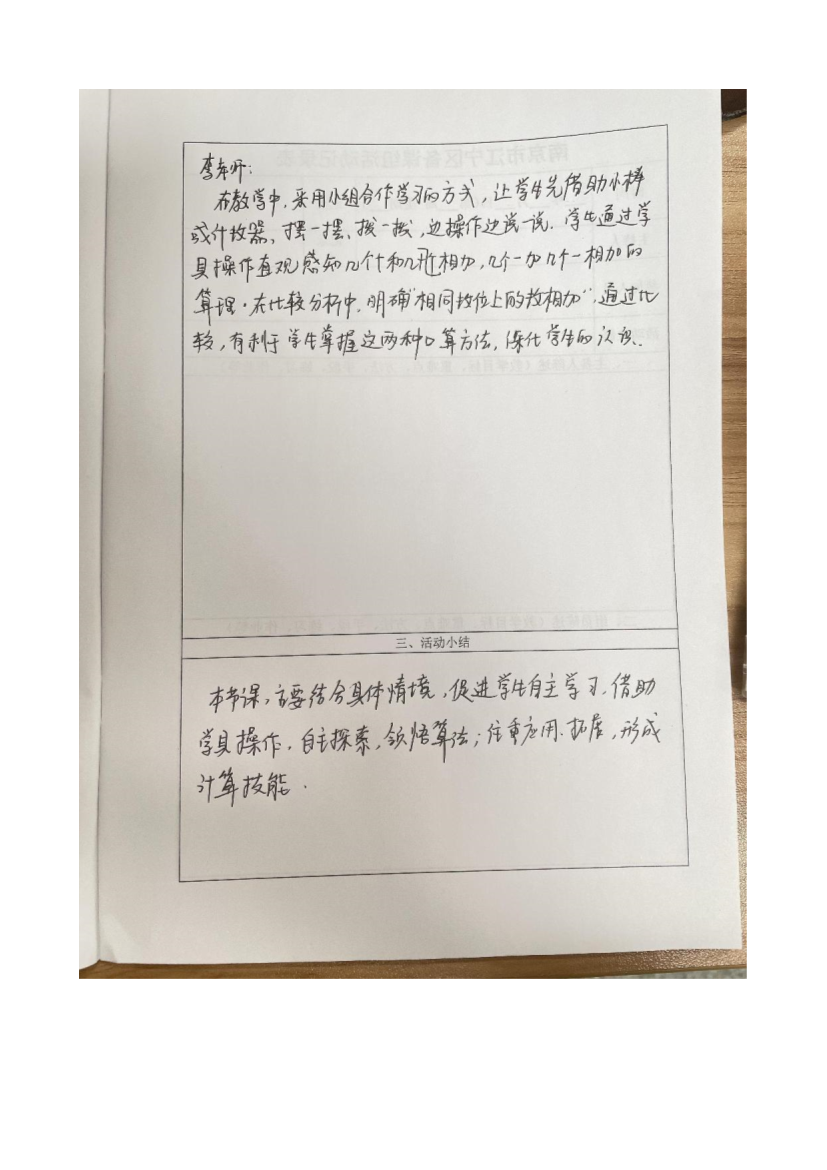 李老师:
在教学中,采用小组合作学习的方式,让学生先借助小棒
或计数器、摆一摆、拨一拨,边操作边说一说.学生通过学
具操作直观感知几个十和几个十相加,几个一加几个一相加的
算理.在比较分析中,明确“相同数位上的数相加”,通过比
较,有利于学生掌握这两种口算方法,深化学生的认识.
三、活动小结
本节课,主要结合具体情境,促进学生自主学习,借助
学具操作,自主探索,领悟算法;注重应用.拓展,形成
计算技能.